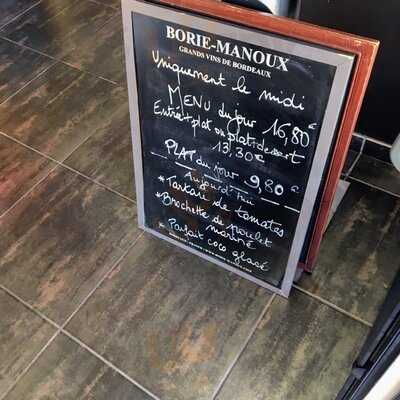 BORIE-MANOUX
GRANDS VINS DE BORDEAUX
Uniquement le midi
MENU du jour 16,80€
Entrée + plat ou plat + dessert
13,30€
PLAT du jour 9,80
Aujourd'hui
*Tartare de tomates
*Brochette de poulet
mariné
Parfait coco glacé